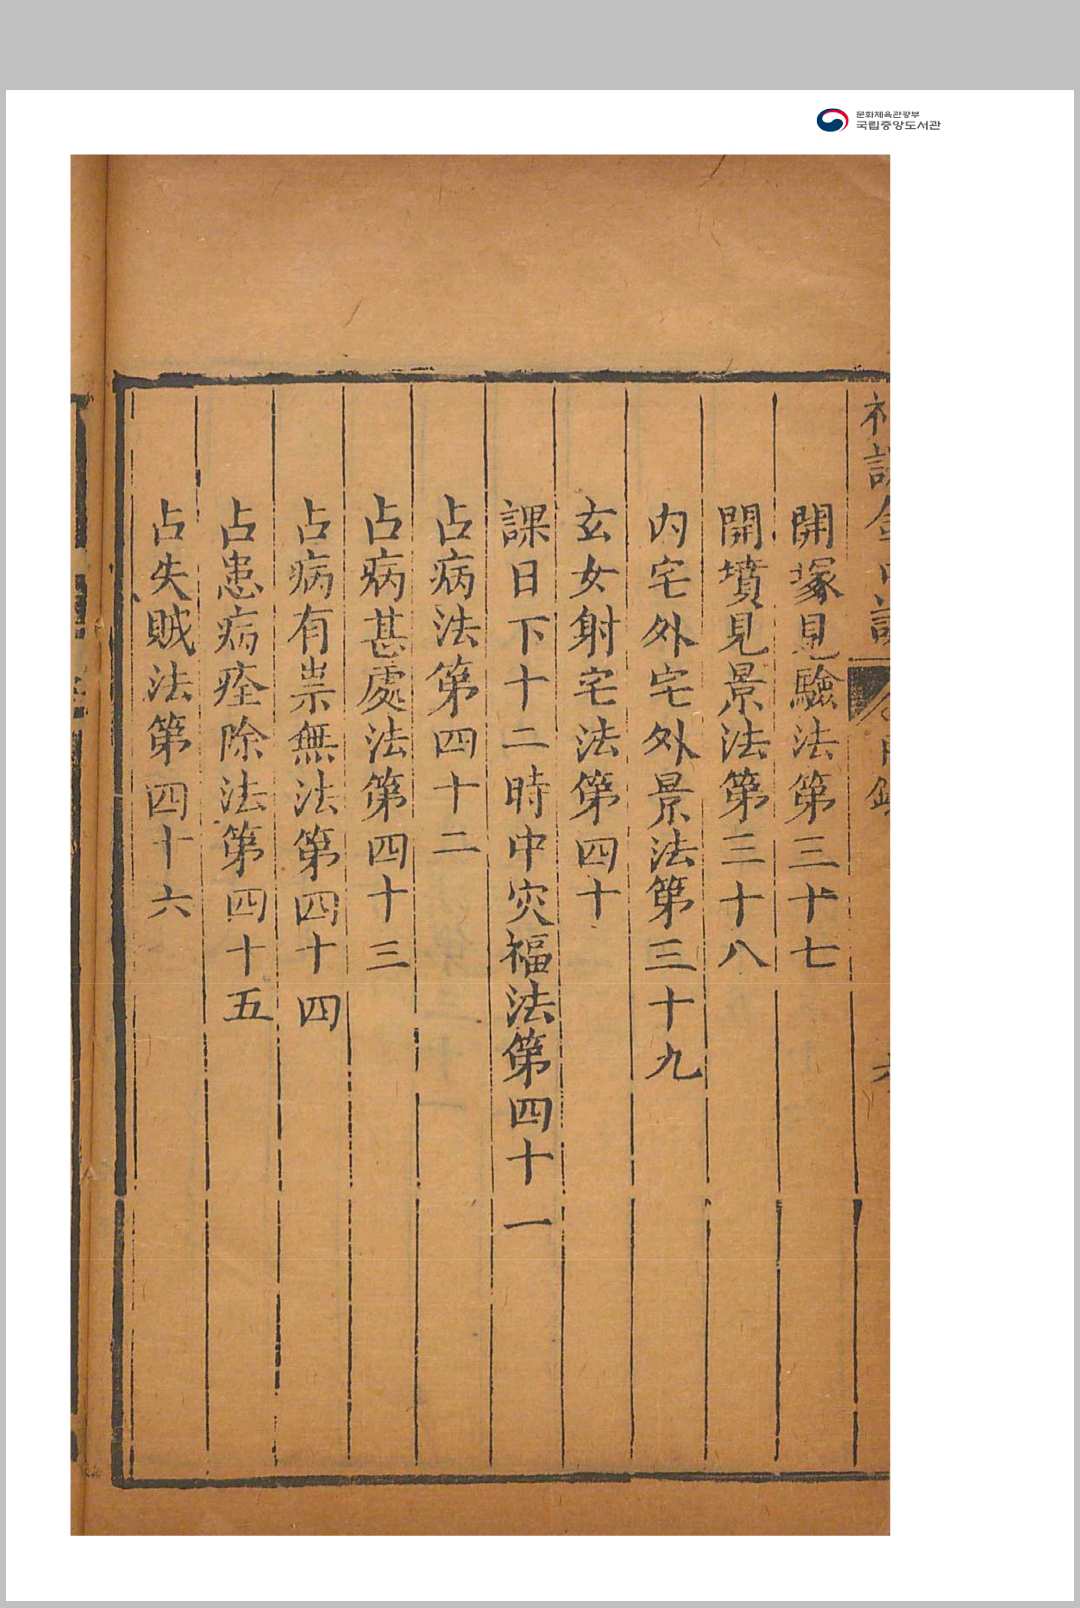 문화체육관광부
국립중앙도서관
開塚見驗法第三十七
開墳見景法第三十八
內宅外宅外景法第三十九
玄女射宅法第四十
課日下十二時中灾福法第四十一
占病法第四十二
占病甚處法第四十三
占病有祟無法第四十四
占患病痊除法第四十五
占失賊法第四十六